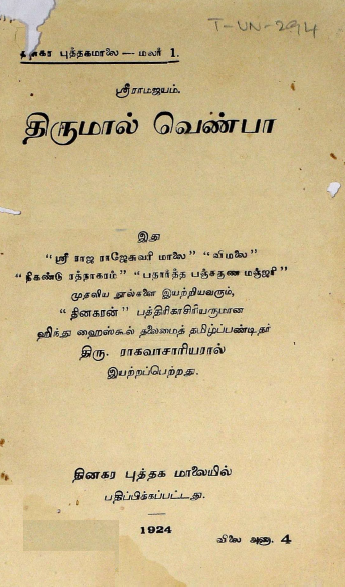 T-VN-294
தினகர புத்தகமாலை — மலர் 1.
ஸ்ரீராமஜயம்.
திருமால் வெண்பா
இது
“ஸ்ரீ ராஜ ராஜேசுவரி மாலை” “விமலை”
“நிகண்டு ரத்நாகரம்” “பதார்த்த பஞ்சகுண மஞ்ஜரி”
முதலிய நூல்களை இயற்றியவரும்,
“தினகரன்” பத்திரிகாசிரியருமான
ஹிந்து ஹைஸ்கூல் தலைமைத் தமிழ்ப்பண்டிதர்
திரு. ராகவாசாரியரால்
இயற்றப்பெற்றது.
தினகர புத்தக மாலையில்
பதிப்பிக்கப்பட்டது.
1924
விலை அணு. 4